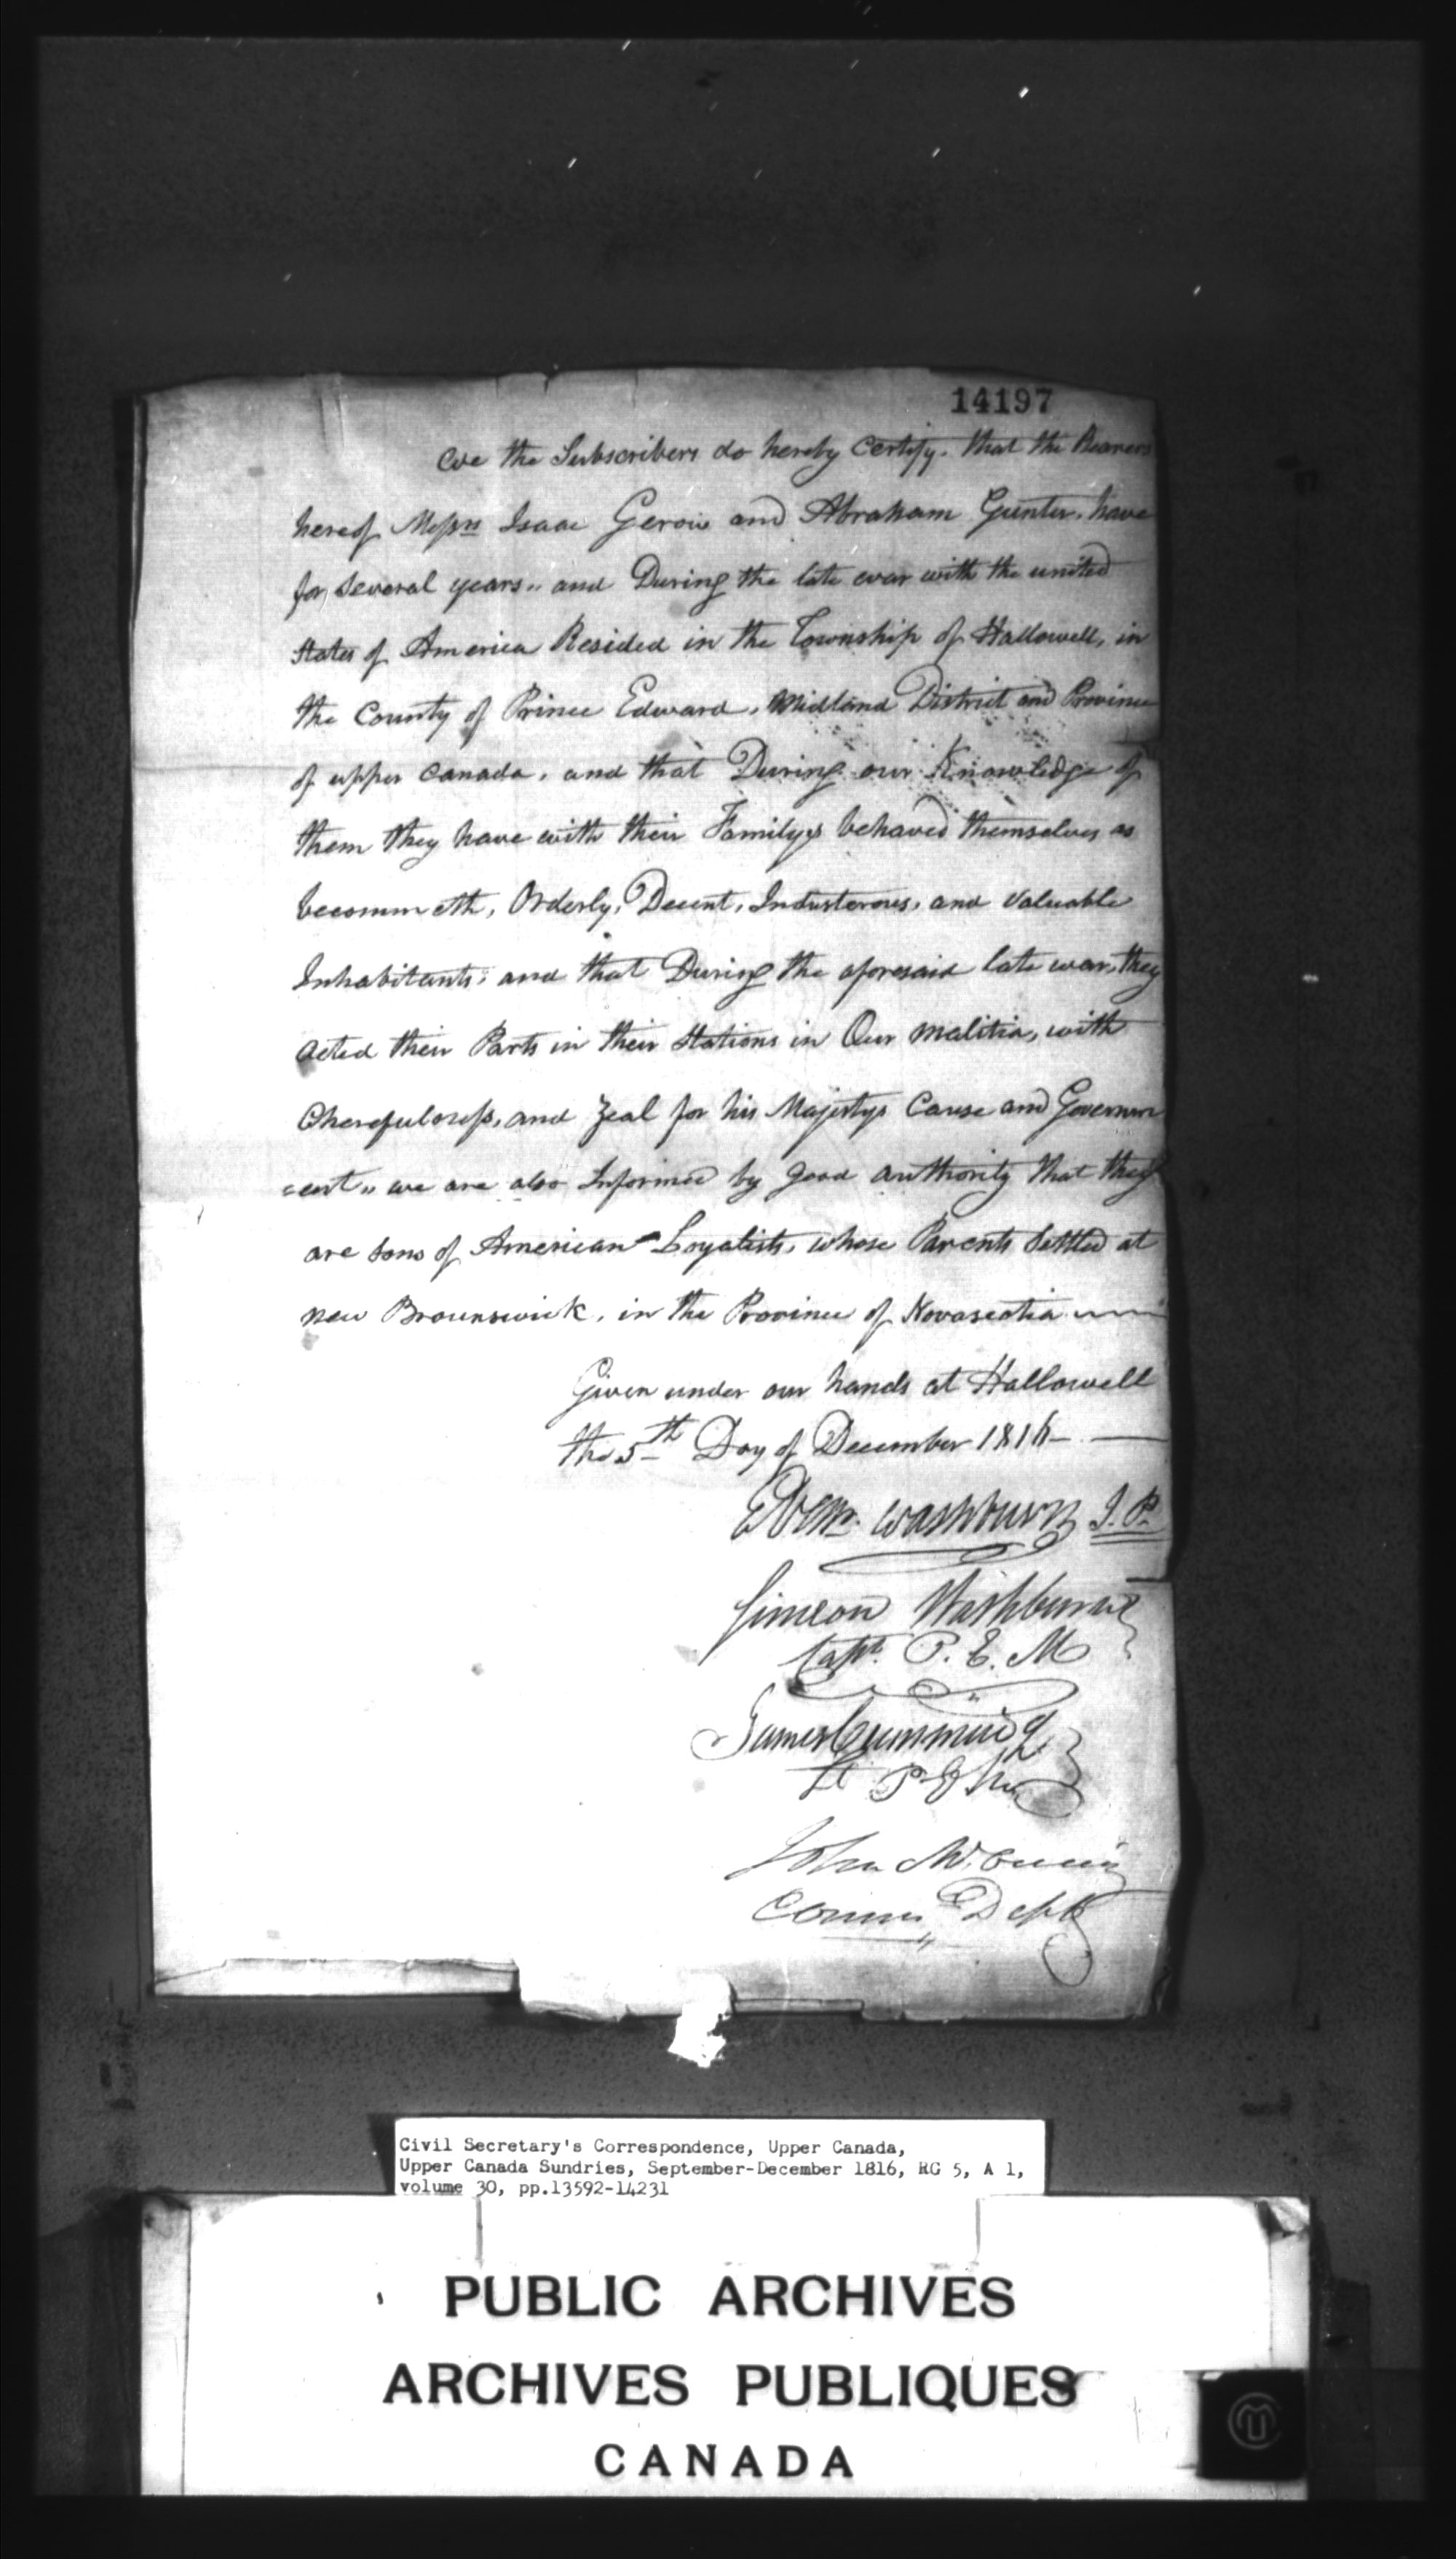 14197
We the Subscribers do hereby Certify. that the Bearers
hereof Messrs Isaac Gerow and Abraham Gunter. have
for Several years. and During the late war with the united
States of America Resided in the Township of Hallowell, in
the County of Prince Edward, Midland District and Province
of upper Canada, and that During our Knowledge of
them they have with their Familys behaved themselves as
becommeth, Orderly, Decent, Industerous, and valuable
Inhabitants; and that During the aforesaid late war, they
acted their Parts in their Stations in Our malitia, with
Cherefulness, and Zeal for his Majestys Cause and Governm
=ent" we are also Informed by good authority that they
are Sons of American Loyalists, whose Parents Settled at
new Brounswick, in the Province of Novascotia
Given under our hands at Hallowell
the 5th Day of December 1816
Ebenr. Washburn J. P.
Simeon Washburn
Capt. P. E. M
James Cumming
Lt P E
John
Commis Dept
Civil Secretary's Correspondence, Upper Canada,
Upper Canada Sundries, September-December 1816, RG 5, A 1,
volume 30, pp.13592-14231
PUBLIC ARCHIVES
ARCHIVES PUBLIQUES
CANADA